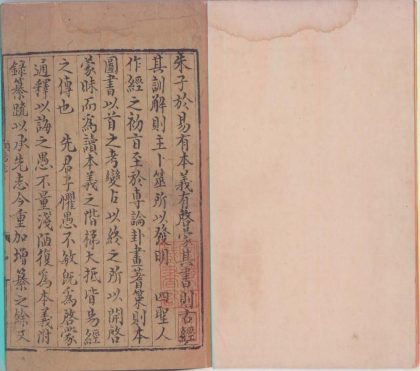 朱子於易有本義有啓蒙其書則古經
其訓解則主卜筮所以發明　四聖人
作經之初旨至於專論卦畫蓍策則本
圖書以首之考變占以終之所以開啓
蒙昧而爲讀本義之階梯大抵皆爲經
之傳也　先君子懼愚不敏既爲啓蒙
通釋以誨之愚不量淺陋復爲本義附
錄纂疏以承先志今重加增纂之餘又